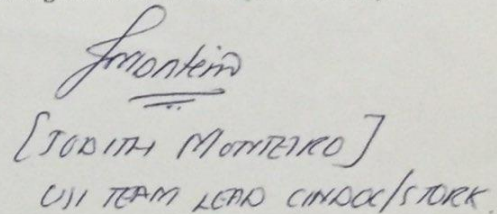 JMonteiro
[JUDITH MONTEIRO]
TEAM LEAD CINDOC/STORK